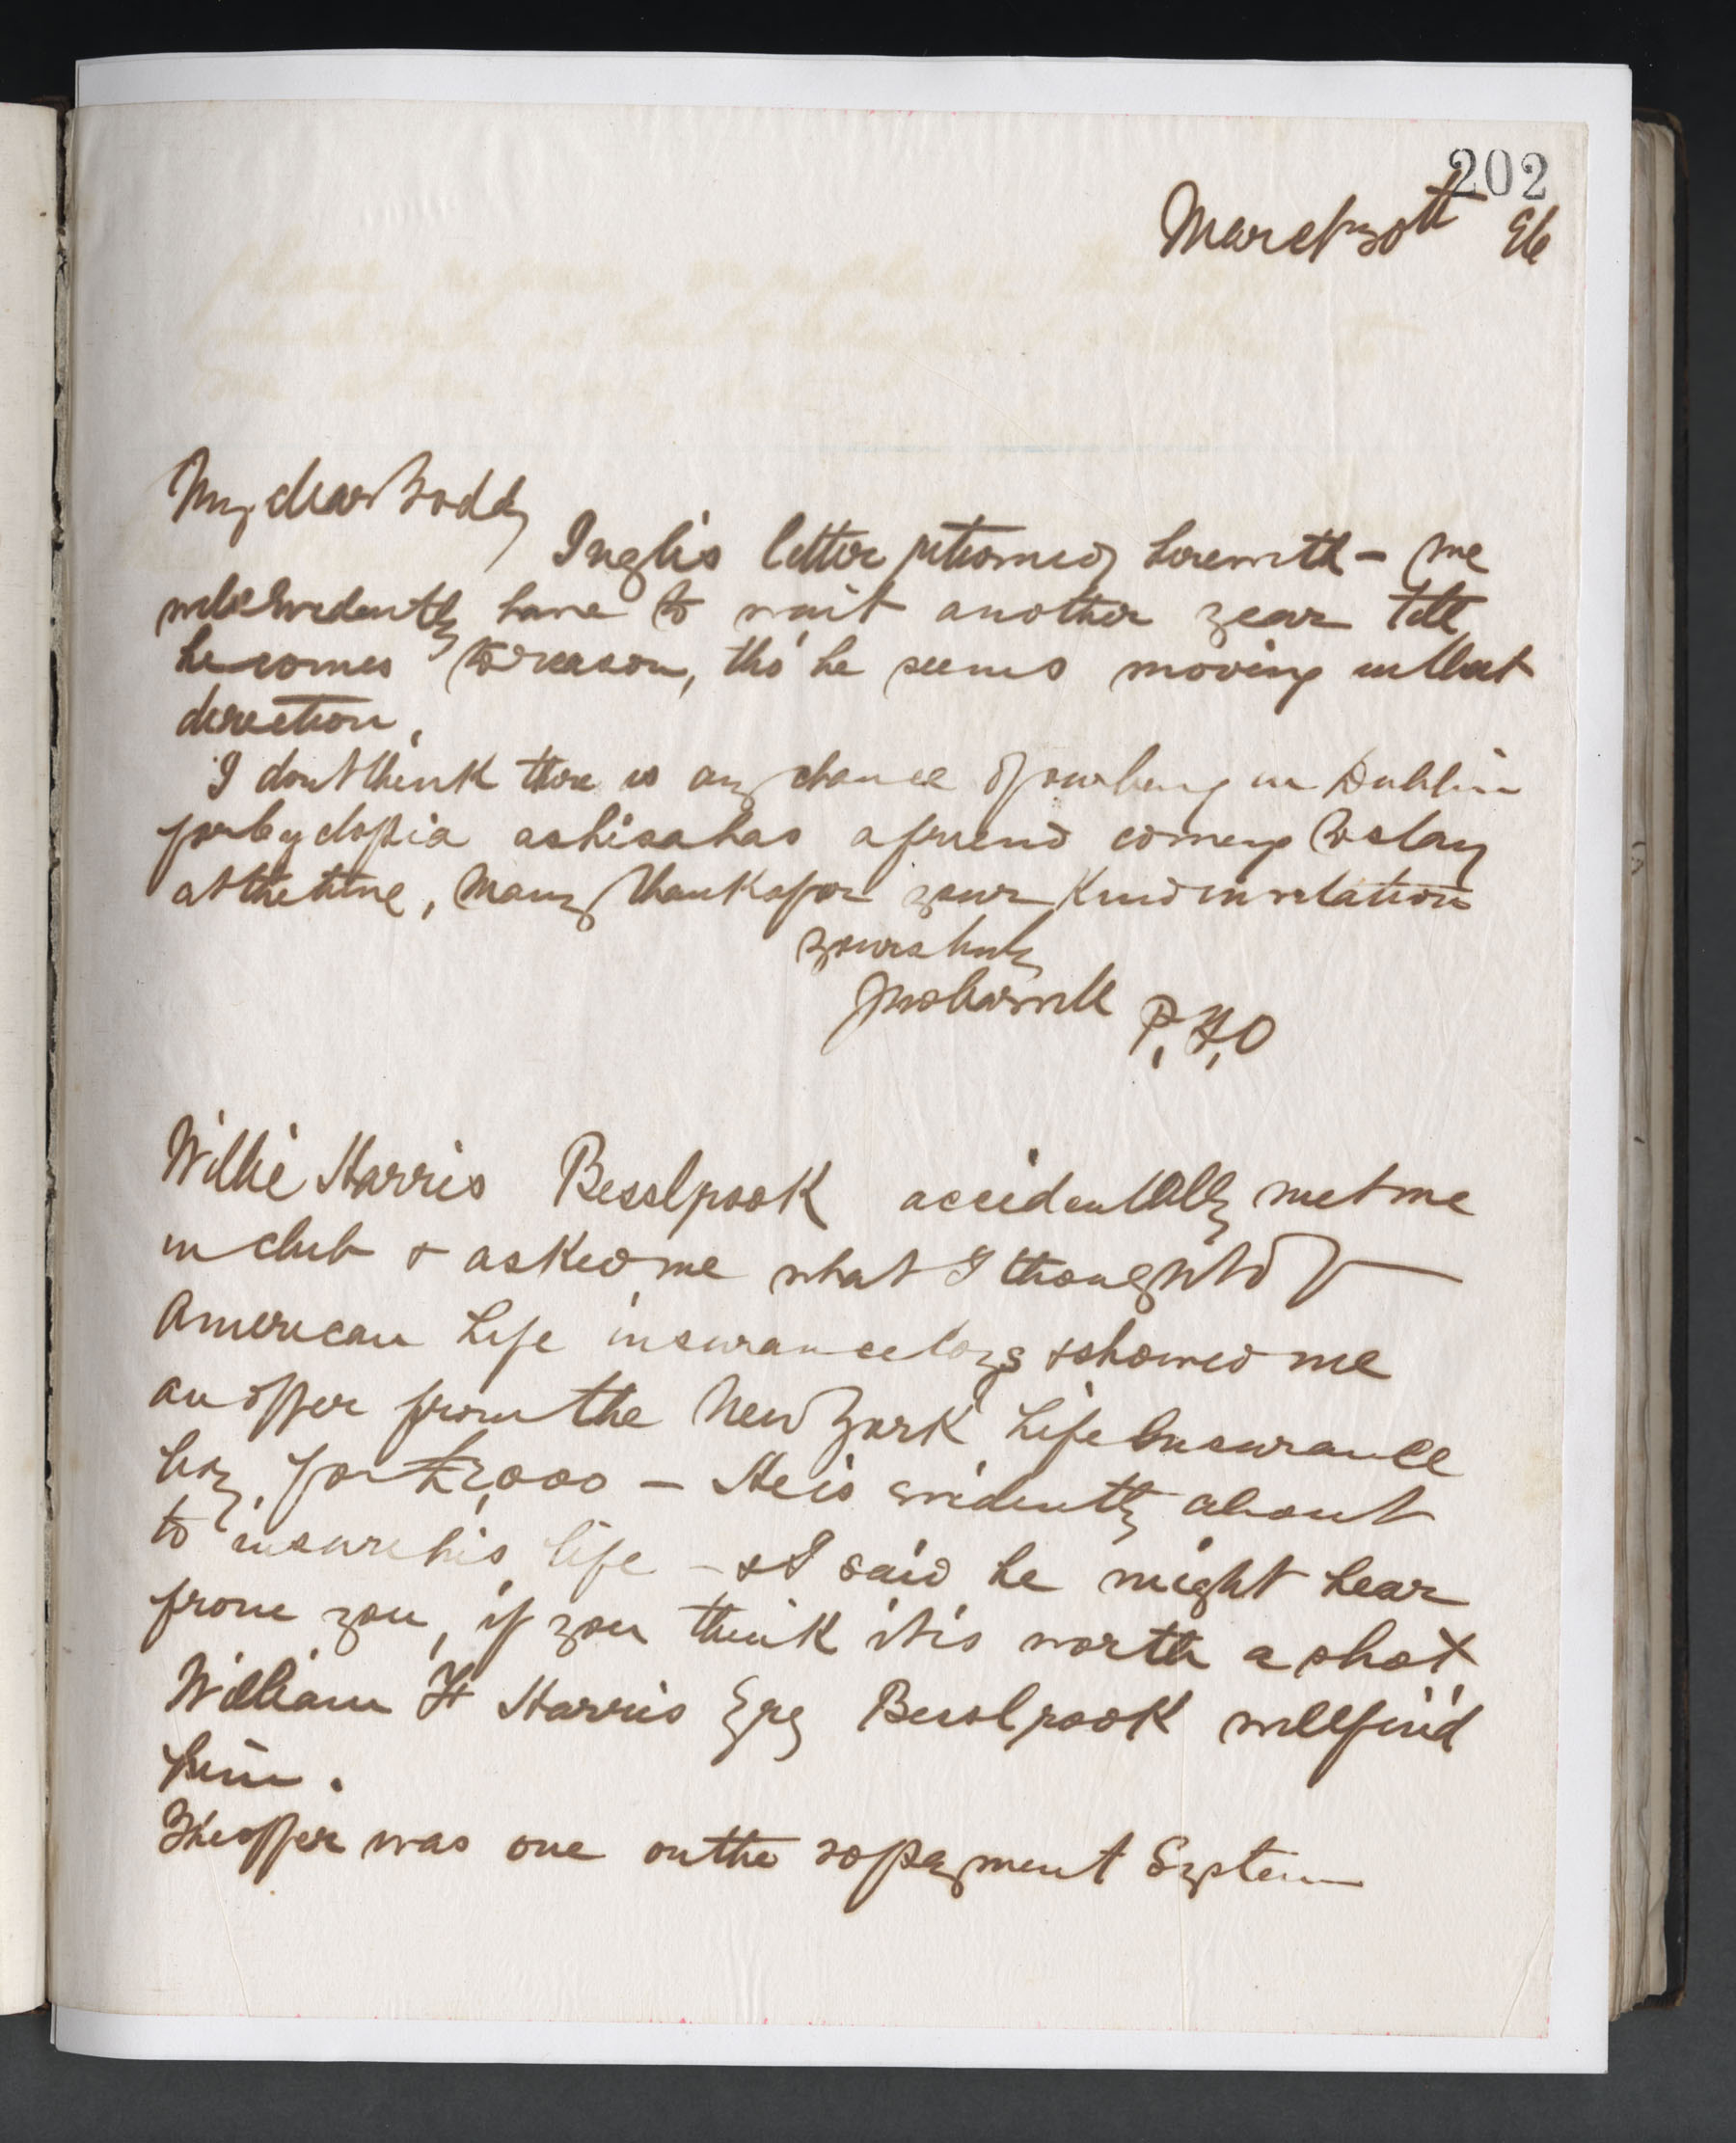 202
March 30th 96
My dear Boddy
Inglis letter returned herewith - we
will evidently have to wait another year till
he comes to reason, tho' he seems moving in that
direction.
I dont think there is any chance of our being in Dublin
for Cyclopia as Lisa has a friend coming to stay
at the time, Many thanks for your kind invitation
yours truly
P.T.O
Willie Harris Bessbrook accidentally met me
in club & asked me what I thought of
American Life insurance Coys & showed me
an offer from the New York Life Insurance
Coy. for £2,000 - He is evidently about
to insure his life - & I said he might hear
from you, if you think it is worth a shot
William H Harris Esq Bessbrook will find
him.
The offer was one on the 20 payment System